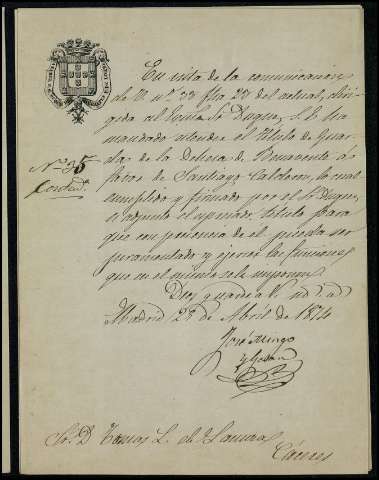 En vista de la comunicacion
de V. nº 33 fha 27 del actual, diri-
gida al Exmo Sr Duque, S. E. ha
mandado estender el titulo de Guar-
das de la Dehesa de Benavente á
favor de Santiago Calderon, lo cual
cumplido y firmado por el Sr Duque,
es adjunto el espresado titulo para
que con presencia de él pueda ser
juramentado y ejercer las funciones
que en el mismo se le imponen
Dios guarde á V. ms. as.
Madrid 29 de Abril de 1874
José Mingo
y
Nº 35
Contad.
Sr. D. Tomas L. de
Cáceres